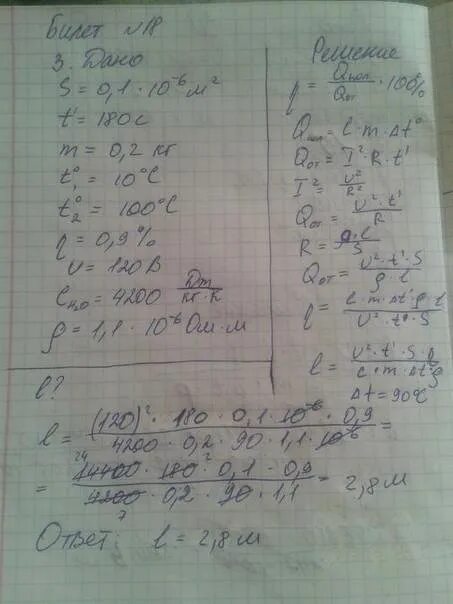 Билет №18
3. Дано
S = 0,1 · 10⁻⁶ м²
t' = 180 с
m = 0,2 кг
t₁° = 10°C
t₂° = 100°C
η = 0,9%
U = 120 В
C H₂O = 4200 Дж/кг·К
ρ = 1,1 · 10⁻⁶ Ом·м
l?
Решение
η = Qпол/Qот · 100%
Qпол = c · m · Δt°
Qот = I² · R · t'
I² = U²/R²
Qот = U² · t'/R
R = ρ · l/S
Qот = U² · t' · S/ρ · l
η = c · m · Δt° ρ · l/U² · t° · S
l = U² · t' · S · η/c · m · Δt° ρ
Δt = 90°C
l = (120)² · 180 · 0,1 · 10⁻⁶ · 0,9/4200 · 0,2 · 90 · 1,1 · 10⁻⁶ =
24 2
= 14400 · 180 · 0,1 · 0,9/4200 · 0,2 · 90 · 1,1 = 2,8 м
7
Ответ: l = 2,8 м